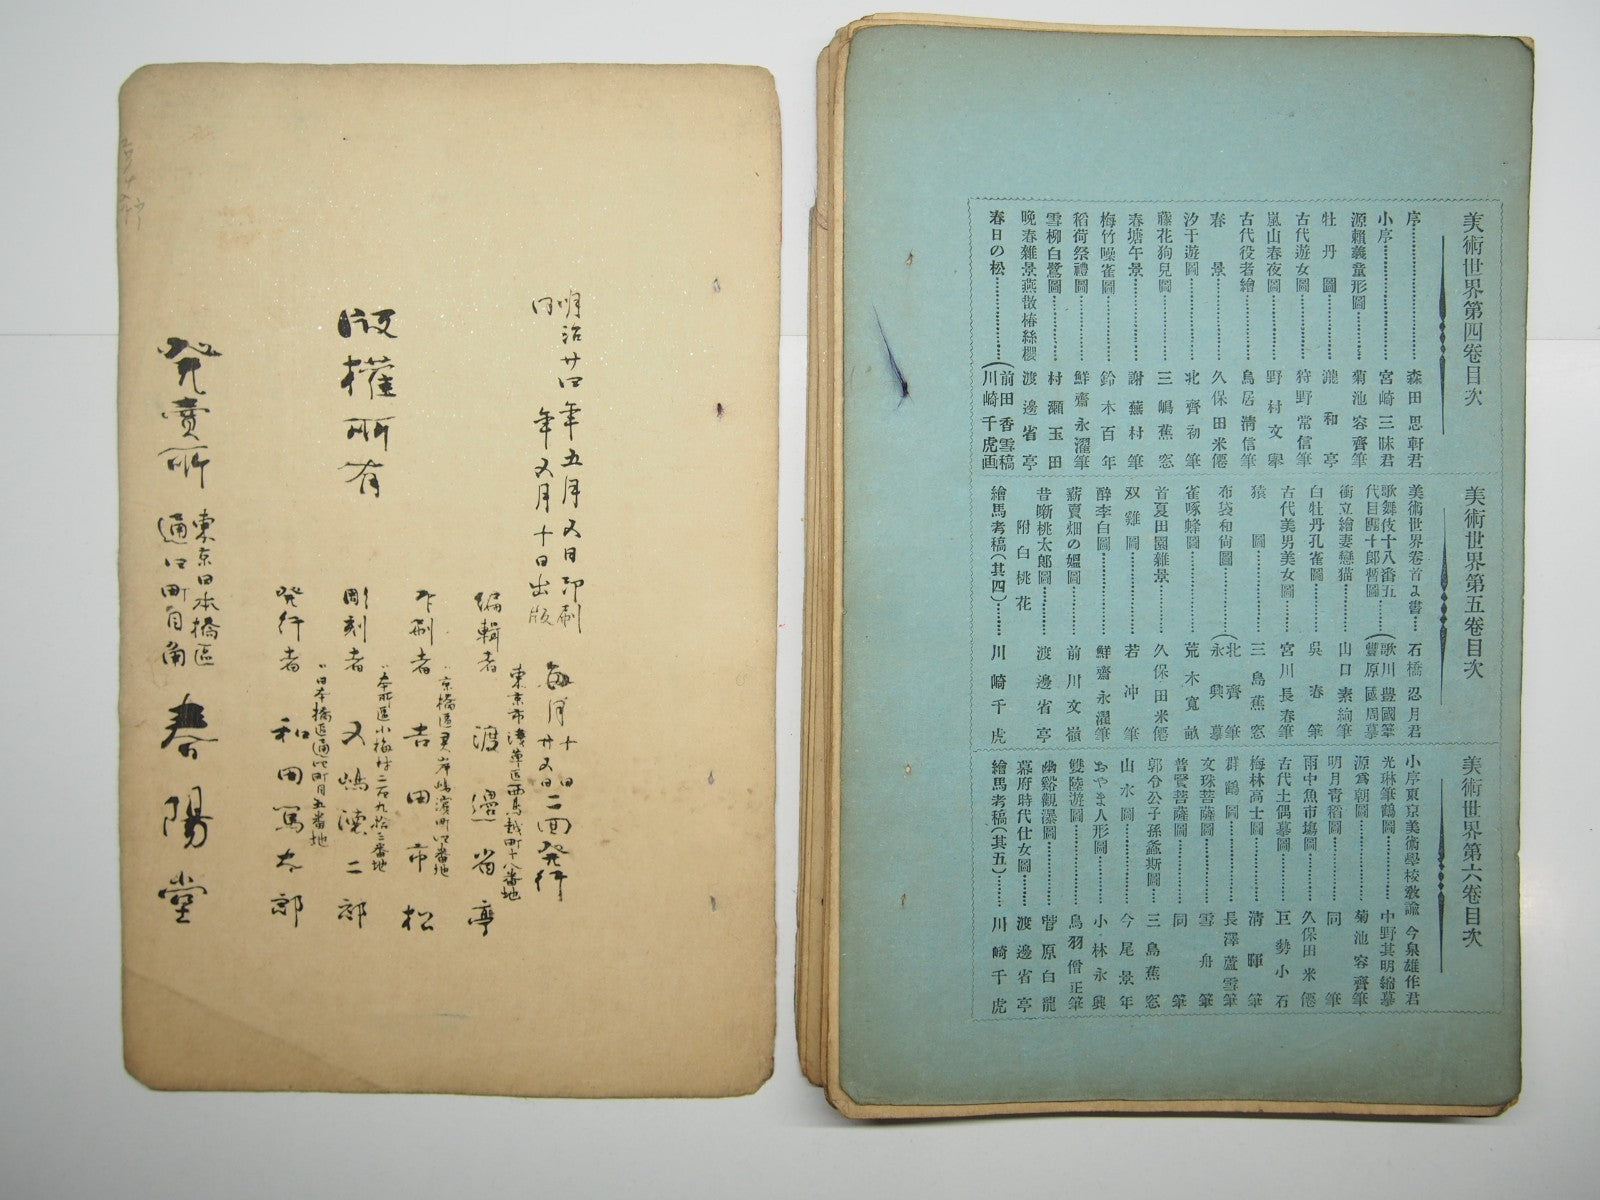 美術世界第四卷目次
序 森田思軒君
小序 宮崎三昧君
源賴義童形圖 菊池容齊筆
牡丹圖 瀧和亭
古代遊女圖 狩野常信筆
嵐山春夜圖 野村文擧
古代役者繪 鳥居清信筆
春景 久保田米僊
汐干遊圖 北齊初筆
藤花狗兒圖 三嶋蕉窓
春塘午景 謝蕪村筆
梅竹噪雀圖 鈴木百年
稻荷祭禮圖 鮮齋永濯筆
雪柳白鷺圖 村瀬玉田
晩春雜景燕散椿絲櫻 渡邊省亭
春日の松 (前田香雪稿
川崎千虎画
美術世界第五卷目次
美術世界卷首よ書 石橋忍月君
歌舞伎十八番五 (歌川豊國筆
代目團十郎暫圖 豐原國周摹
衝立繪妻戀猫 山口素絢筆
白牡丹孔雀圖 呉春筆
古代美男美女圖 宮川長春筆
猿圖 三島蕉窓
布袋和尙圖 (北齊筆
永興摹
雀啄蜂圖 荒木寬畝
首夏田園雜景 久保田米僊
双雞圖 若冲筆
醉李白圖 鮮齋永濯筆
薪賣畑の媼圖 前川文嶺
昔噺桃太郎圖 渡邊省亭
附白桃花
繪馬考稿(其四) 川崎千虎
美術世界第六卷目次
小序東京美術學校敎諭 今泉雄作君
光琳筆鶴圖 中野其明縮摹
源爲朝圖 菊池容齊筆
明月靑稻圖 同筆
雨中魚市塲圖 久保田米僊
古代土偶摹圖 巨勢小石
梅林高士圖 清暉筆
群鶴圖 長澤蘆雪筆
文珠菩薩圖 雪舟筆
普賢菩薩圖 同筆
郭令公子孫螽斯圖 三島蕉窓
山水圖 今尾景年
おやま人形圖 小林永興
雙陸遊圖 鳥羽僧正筆
幽谿觀瀑圖 菅原白龍
幕府時代仕女圖 渡邊省亭
繪馬考稿(其五) 川崎千虎
明治廿四年五月又日印刷
同年又月十日出版
毎月十日廿又日二回発行
版權所有
東京市淺草區西鳥越町十八番地
編輯者 渡邊省亭
京橋區灵岸嶋濱町四番地
印刷者 吉田市松
本所區小梅村二百九拾三番地
彫刻者 又嶋德二郎
日本橋區通四町目五番地
発行者 和田篤太郎
発賣所 東京日本橋區
通四町目角 春陽堂